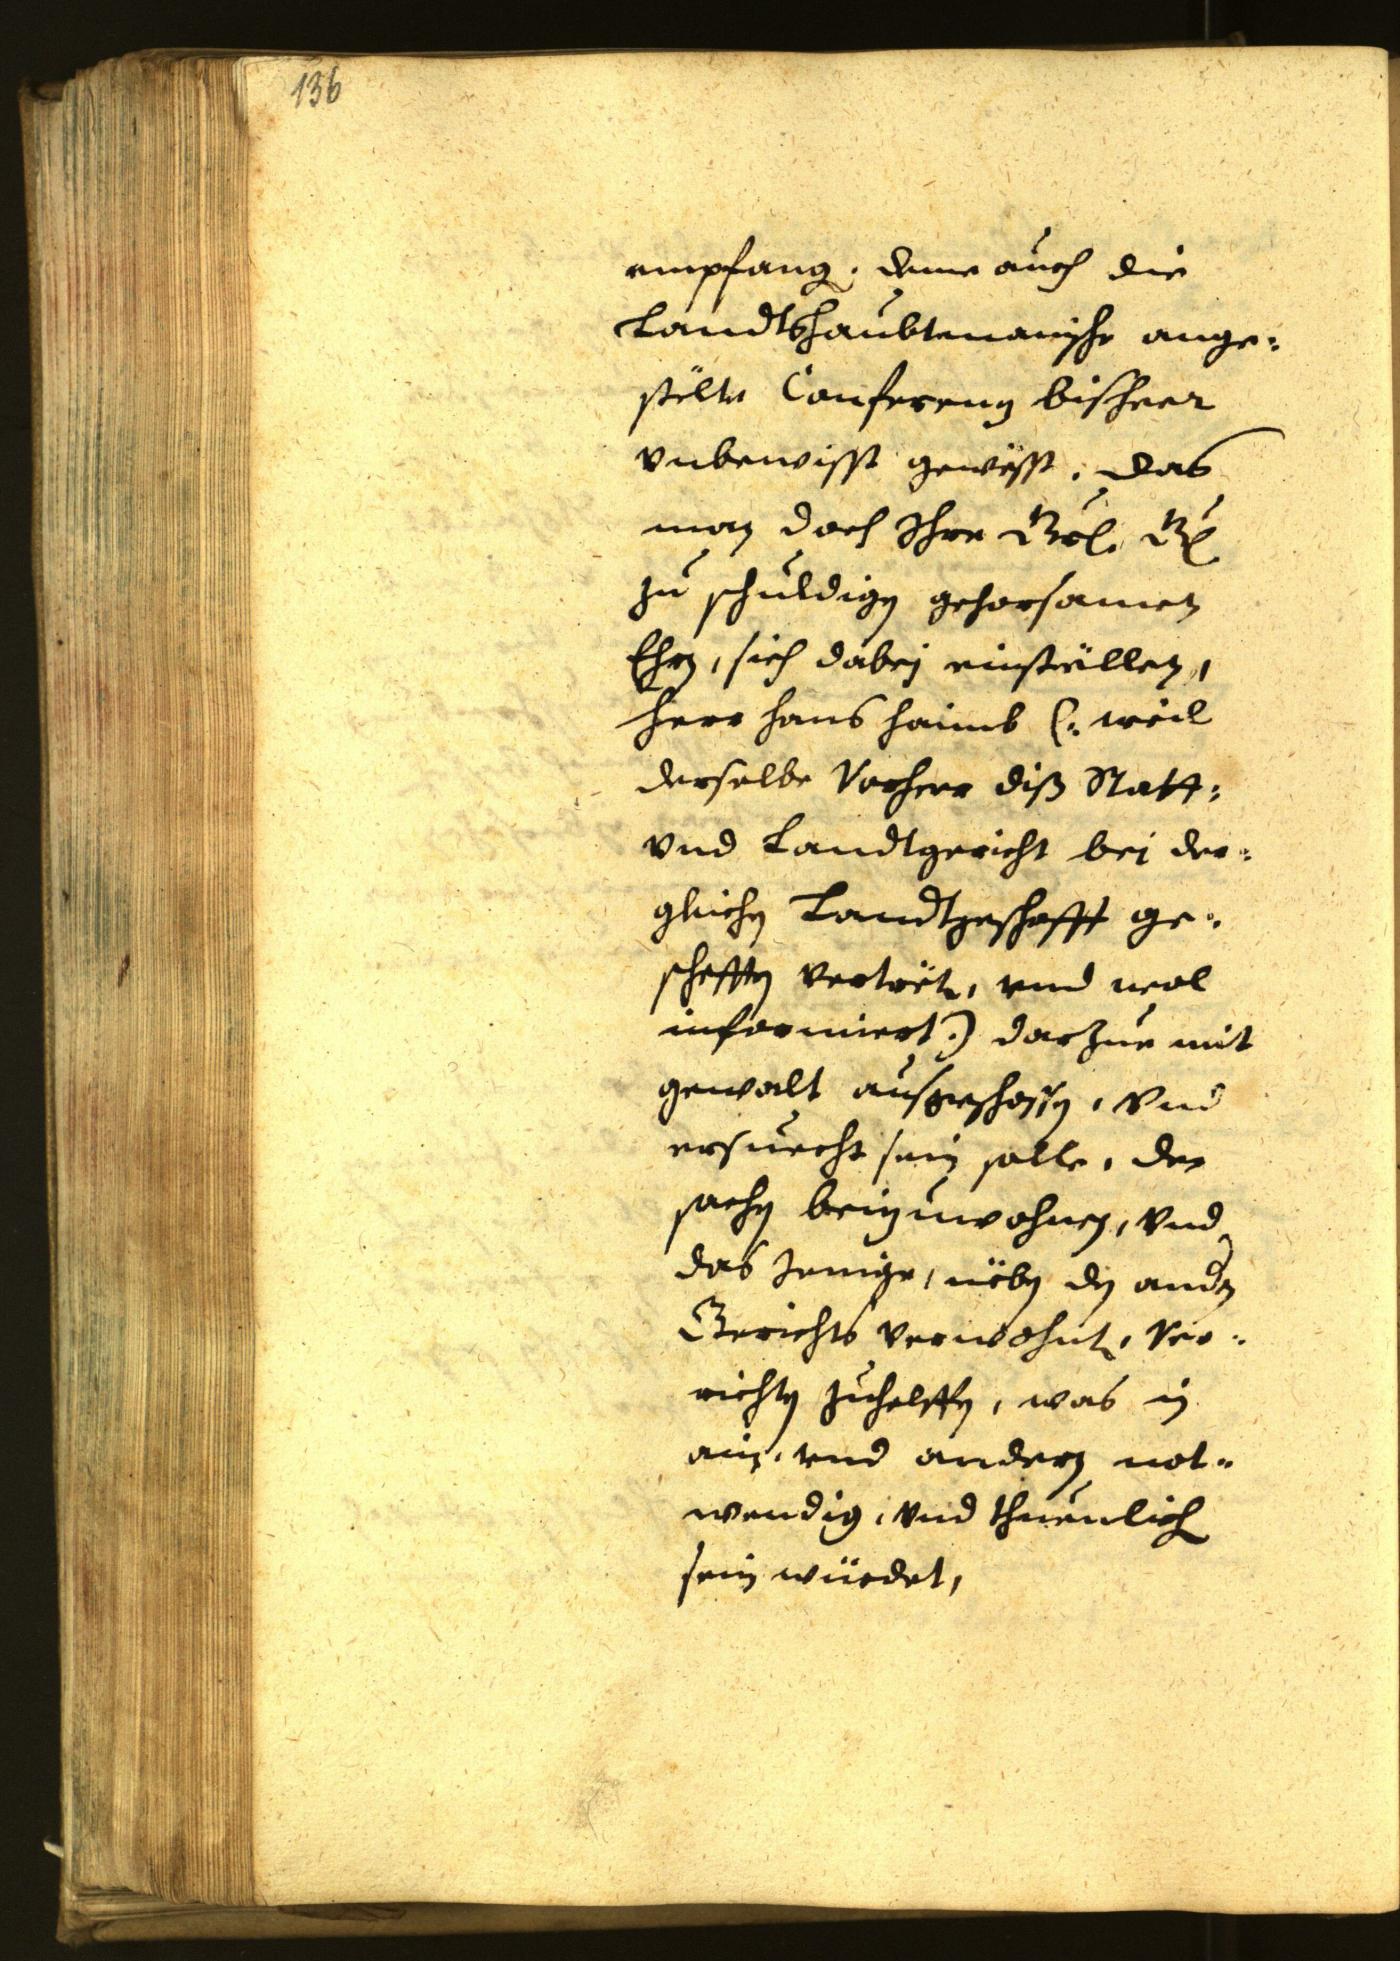 136
empfang. deme auch die
Landtshaubtmanische ange-
stölte Conferenz bisheer
vnbewisst gewösst, das
man doch Ihre Gr. Gn
zu schuldigen gehorsamen
Ehrn, sich dabej einstöllen,
herr hans haimb (: weil
derselbe Vorheer diß Statt-
vnd Landtgericht bei der-
gleichen Landtgeschefft ge-
schefften vertrët, vnd wol
informiert :) darzue mit
gewalt ausgeschossen, vnd
ersuecht sein solle, der
sachen beizuwohnen, vnd
das Jenige, nöben den andern
Gerichts verwohnten, ver-
richten zuhelffen, was in
ain, vnd andern not-
wendig, vnd thuenlich
sein würdet,